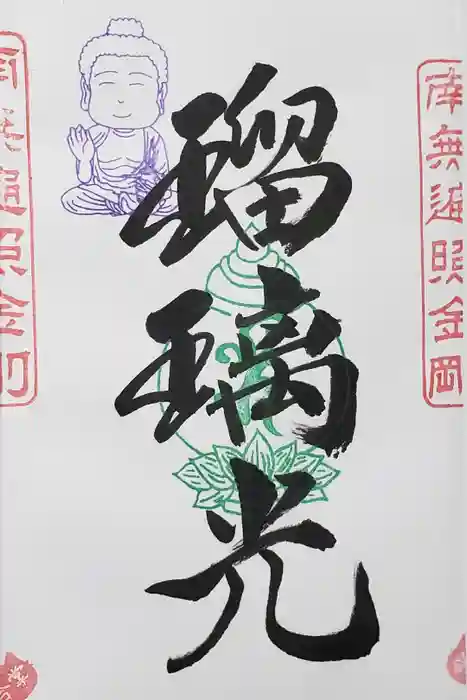 南無遍照金岡
瑠璃光
無遍照金